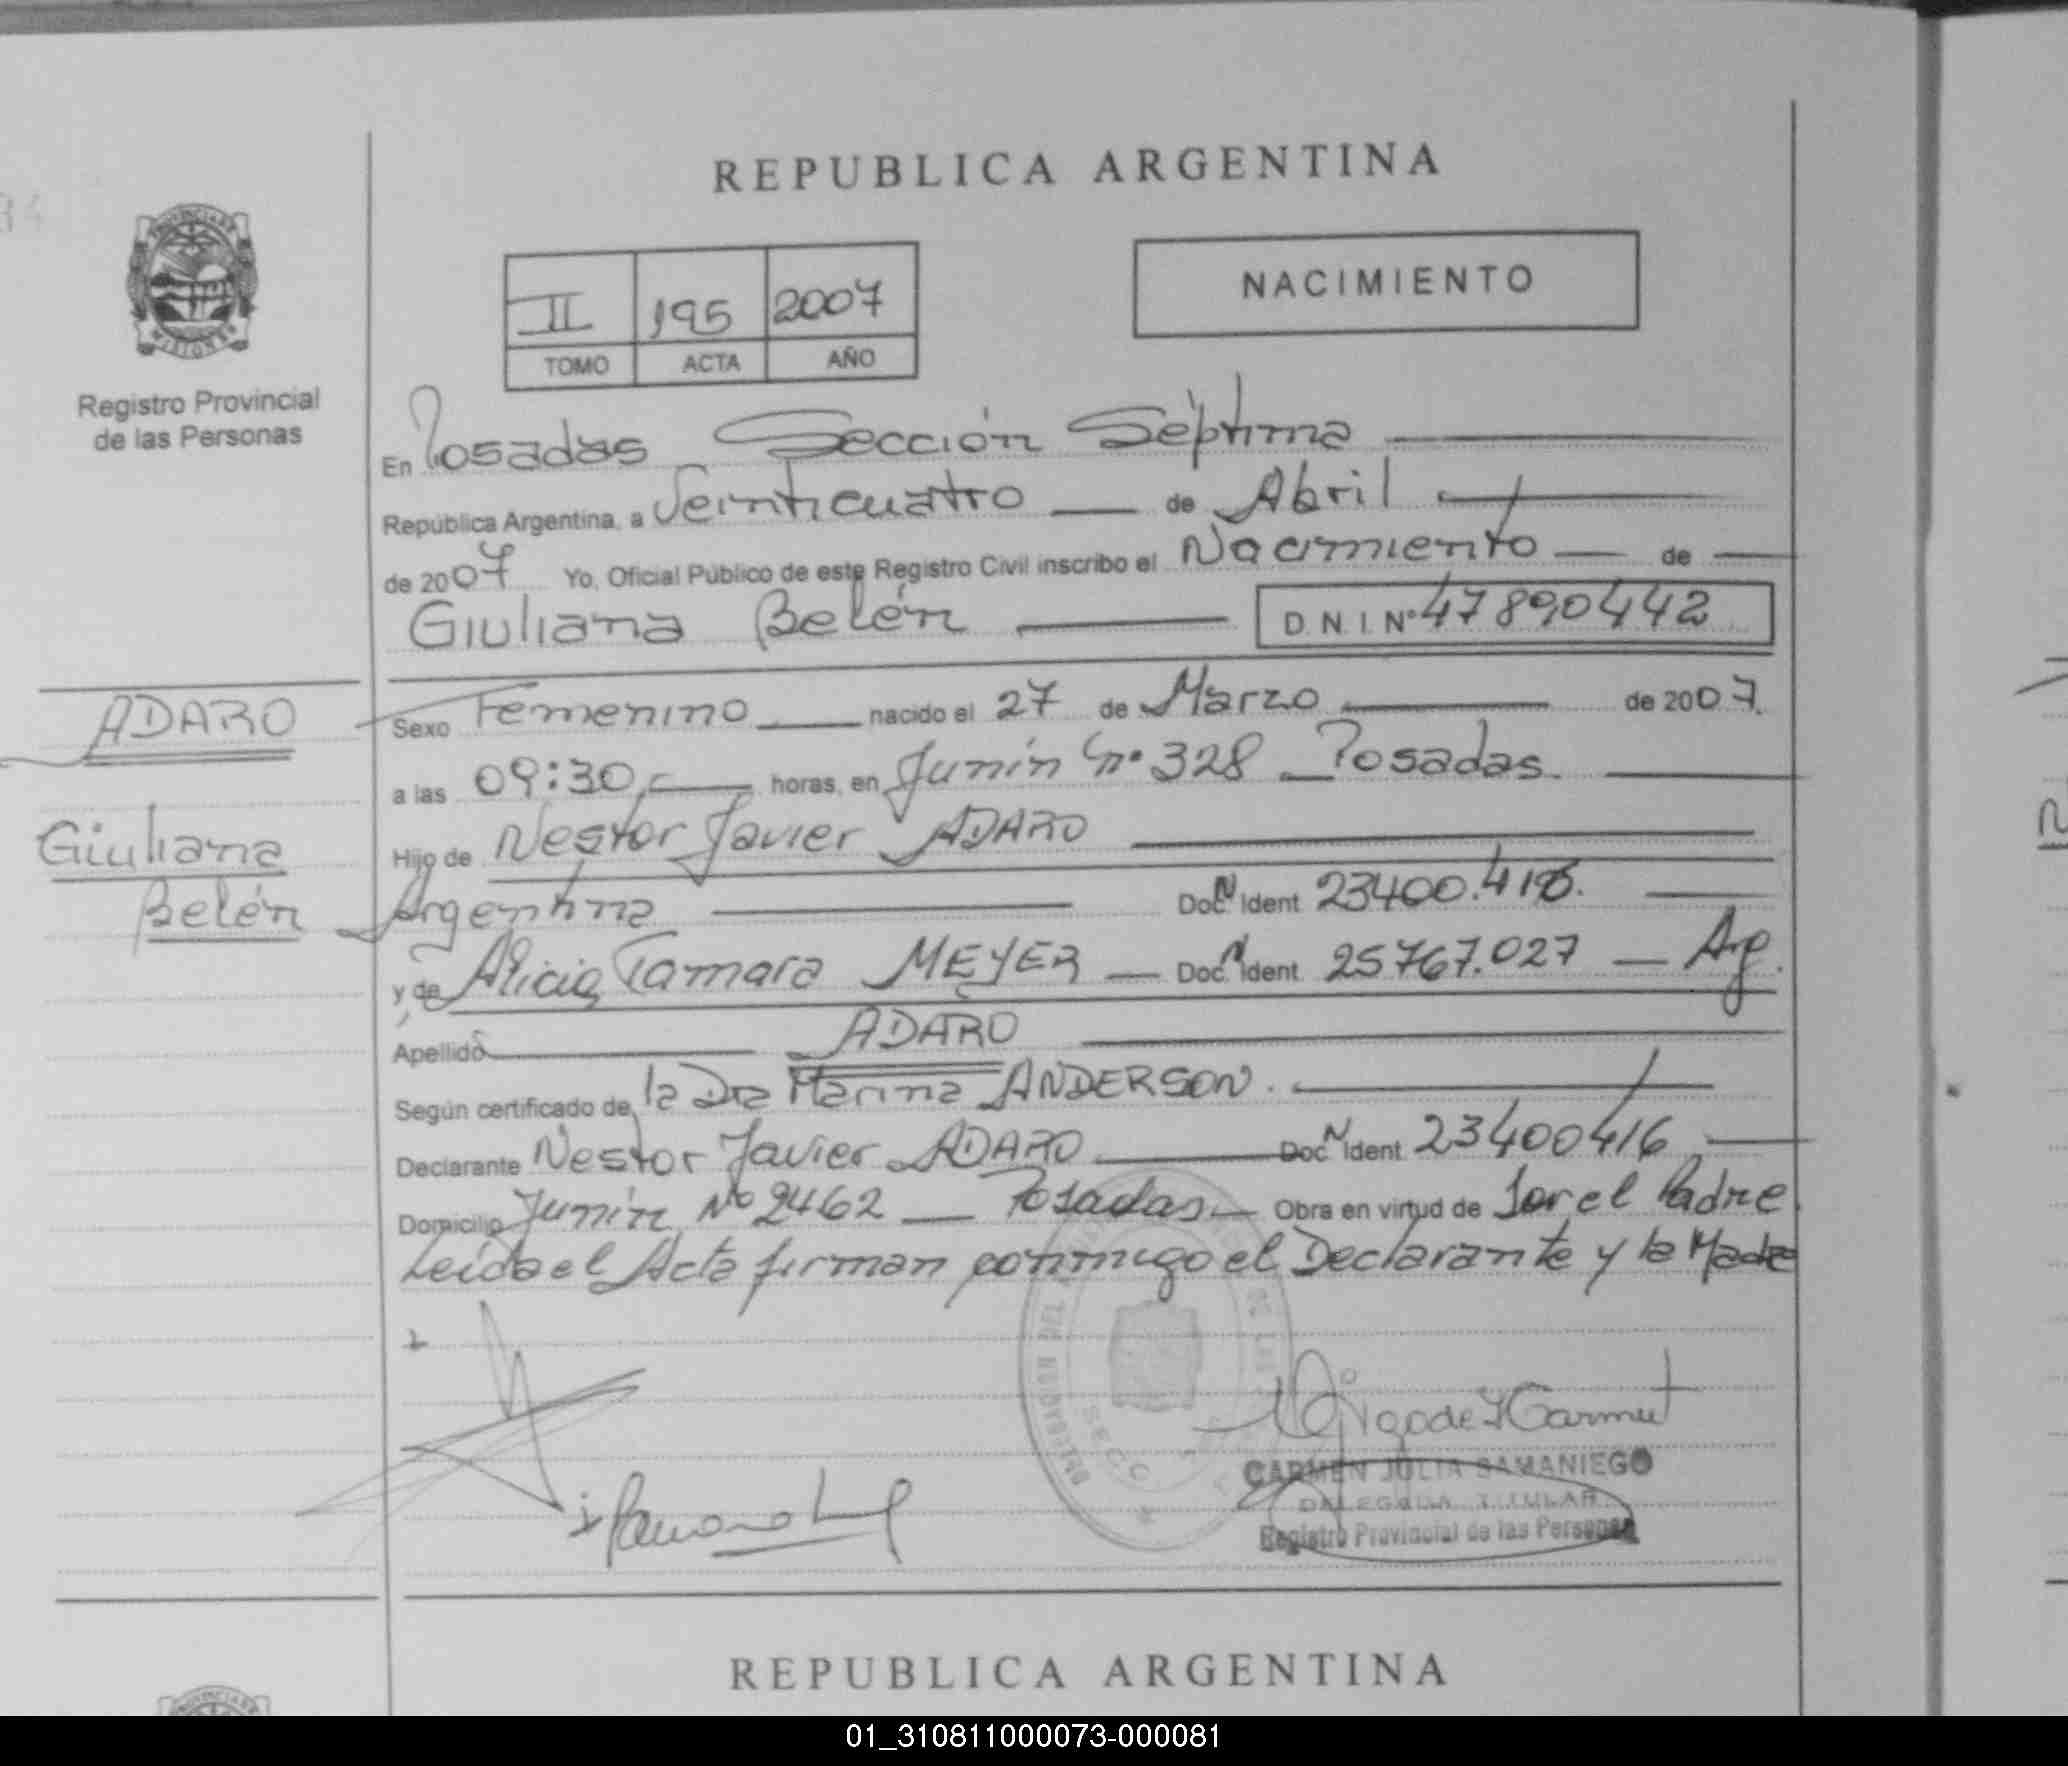 REPUBLICA ARGENTINA
NACIMIENTO
II 195 2007
TOMO ACTA AÑO
PROVINCIA DE
MISIONES
Registro Provincial
de las Personas
En Posadas Sección Séptima
República Argentina, a Veinticuatro de Abril
de 2007 Yo, Oficial Público de este Registro Civil inscribo el Nacimiento de
Giuliana Belén D.N.I. Nº 47890442
ADARO
Giuliana
Belén
Sexo Femenino nacido el 27 de Marzo de 2007.
a las 09:30 horas, en Junín Nº 328 Posadas.
Hijo de Nestor Javier ADARO
Argentina Doc. N Ident 23400.416.
y de Alicia Tamara MEYER Doc. N Ident. 25767.027 Arg.
Apellido ADARO
Según certificado de la Dra Marina ANDERSON.
Declarante Nestor Javier ADARO Doc. N Ident. 23400416
Domicilio Junín Nº 2462 Posadas Obra en virtud de Ser el Padre.
Leida el Acta firman conmigo el Declarante y la Madre
CARMEN JULIA SAMANIEGO
DELEGADA TITULAR
Registro Provincial de las Personas
REPUBLICA ARGENTINA
01_310811000073-000081